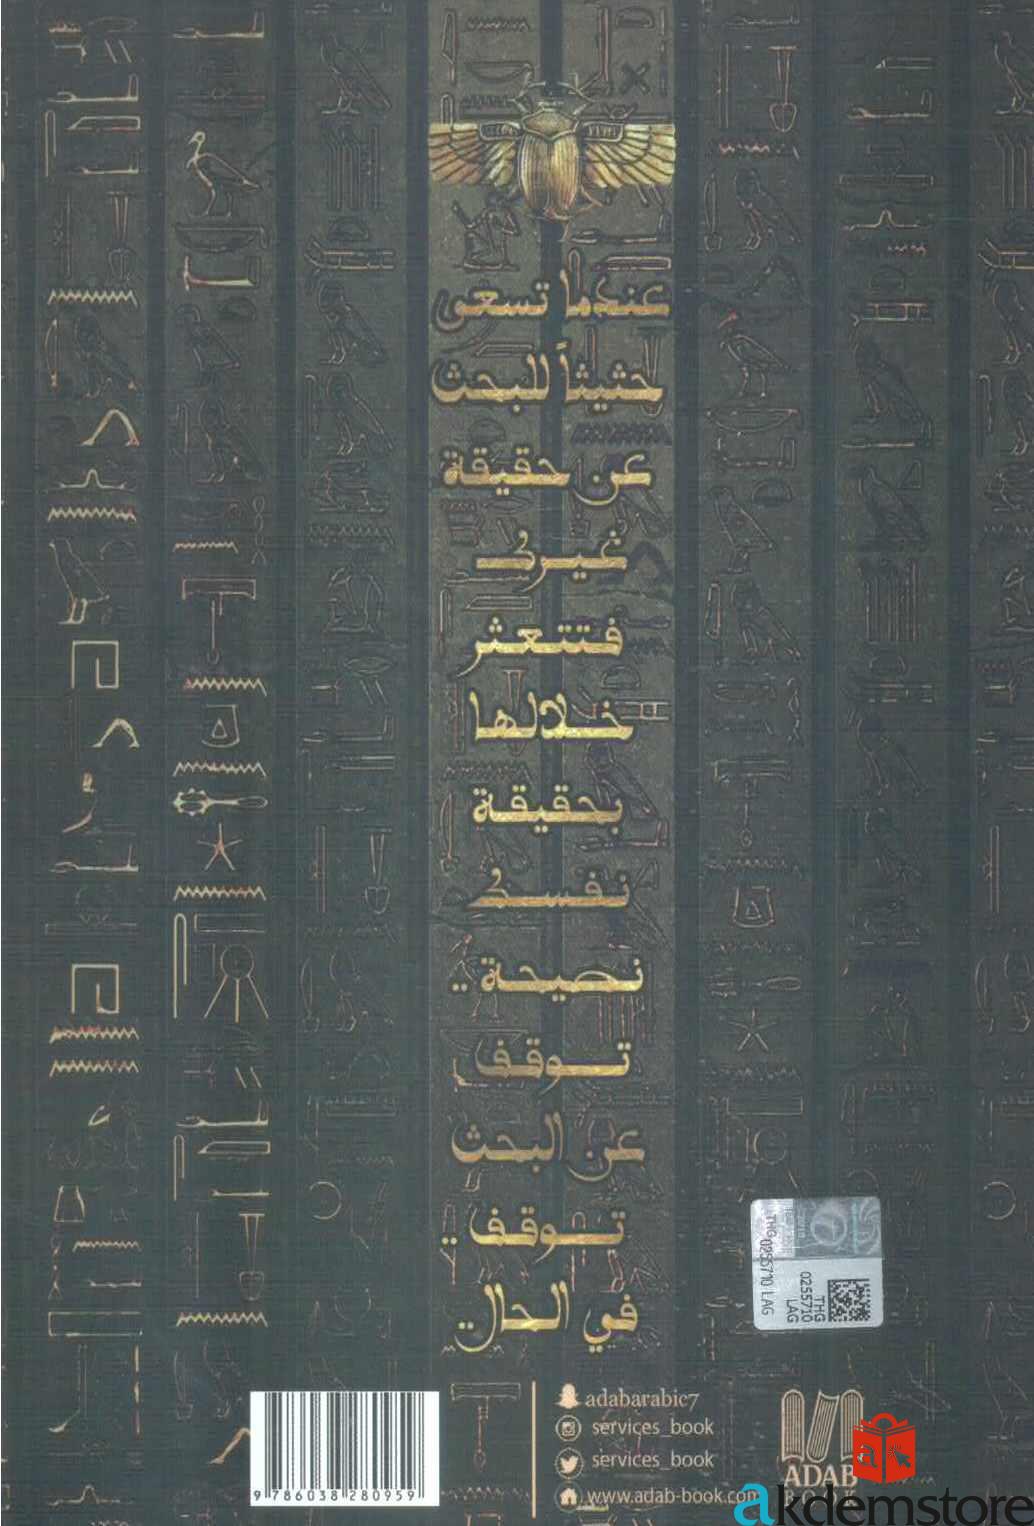 عندما تسعى
حثيثاً للبحث
عن حقيقة
غيرك
فتتعثر
خلالها
بحقيقة
نفسك
نصيحة ..
توقف
عن البحث
توقف ..
في الحال ..
THG 0255710 LAG
THG
0255710
LAG
adabarabic7
services_book
services_book
www.adab-book.com
ADAB
BOOK
9 786038 280959
akdemstore